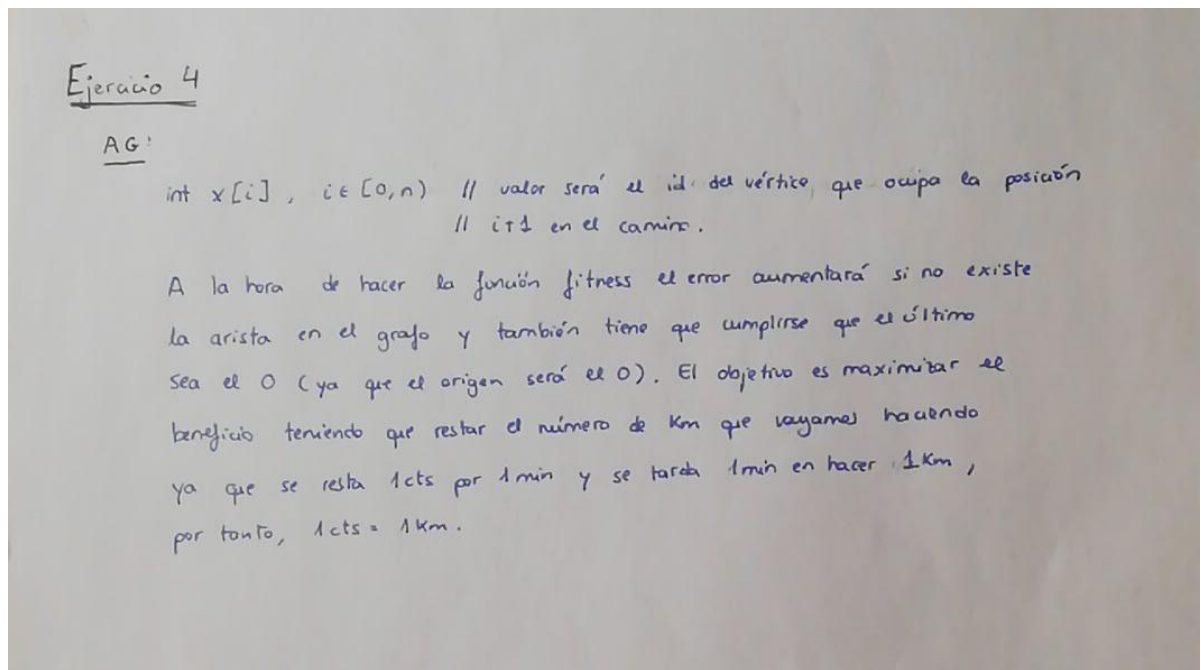 Ejercicio 4
AG:
int x[i] , i ∈ [0,n) // valor será el id. del vértice que ocupa la posición
// i+1 en el camino.
A la hora de hacer la función fitness el error aumentará si no existe
la arista en el grafo y también tiene que cumplirse que el último
sea el 0 (ya que el origen será el 0). El objetivo es maximizar el
beneficio teniendo que restar el número de Km que vayamos haciendo
ya que se resta 1cts por 1 min y se tarda 1min en hacer 1Km,
por tanto, 1cts = 1Km.